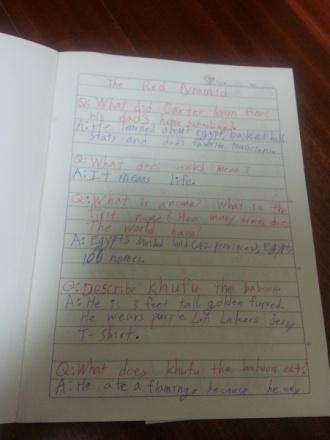 The Red Pyramid
Q: What did Carter learn from
his dad's home schooling?
A: He learned about Egypt, basket ball
stats and dad's favorite musicians.
Q: What does ankh mean?
A: It means life.
Q: What is a nome? What is the
first nome? How many nomes does
the world have?
A: Egypts divided land (42 provinces), Egypt,
360 nomes.
Q: Describe khufu the baboon
A: He is 3 feet tall, golden furred.
He wears purple L.A Lakers Jersy
T-shirt.
Q: What does khufu the baboon eats?
A: He ate a flamingo because he only